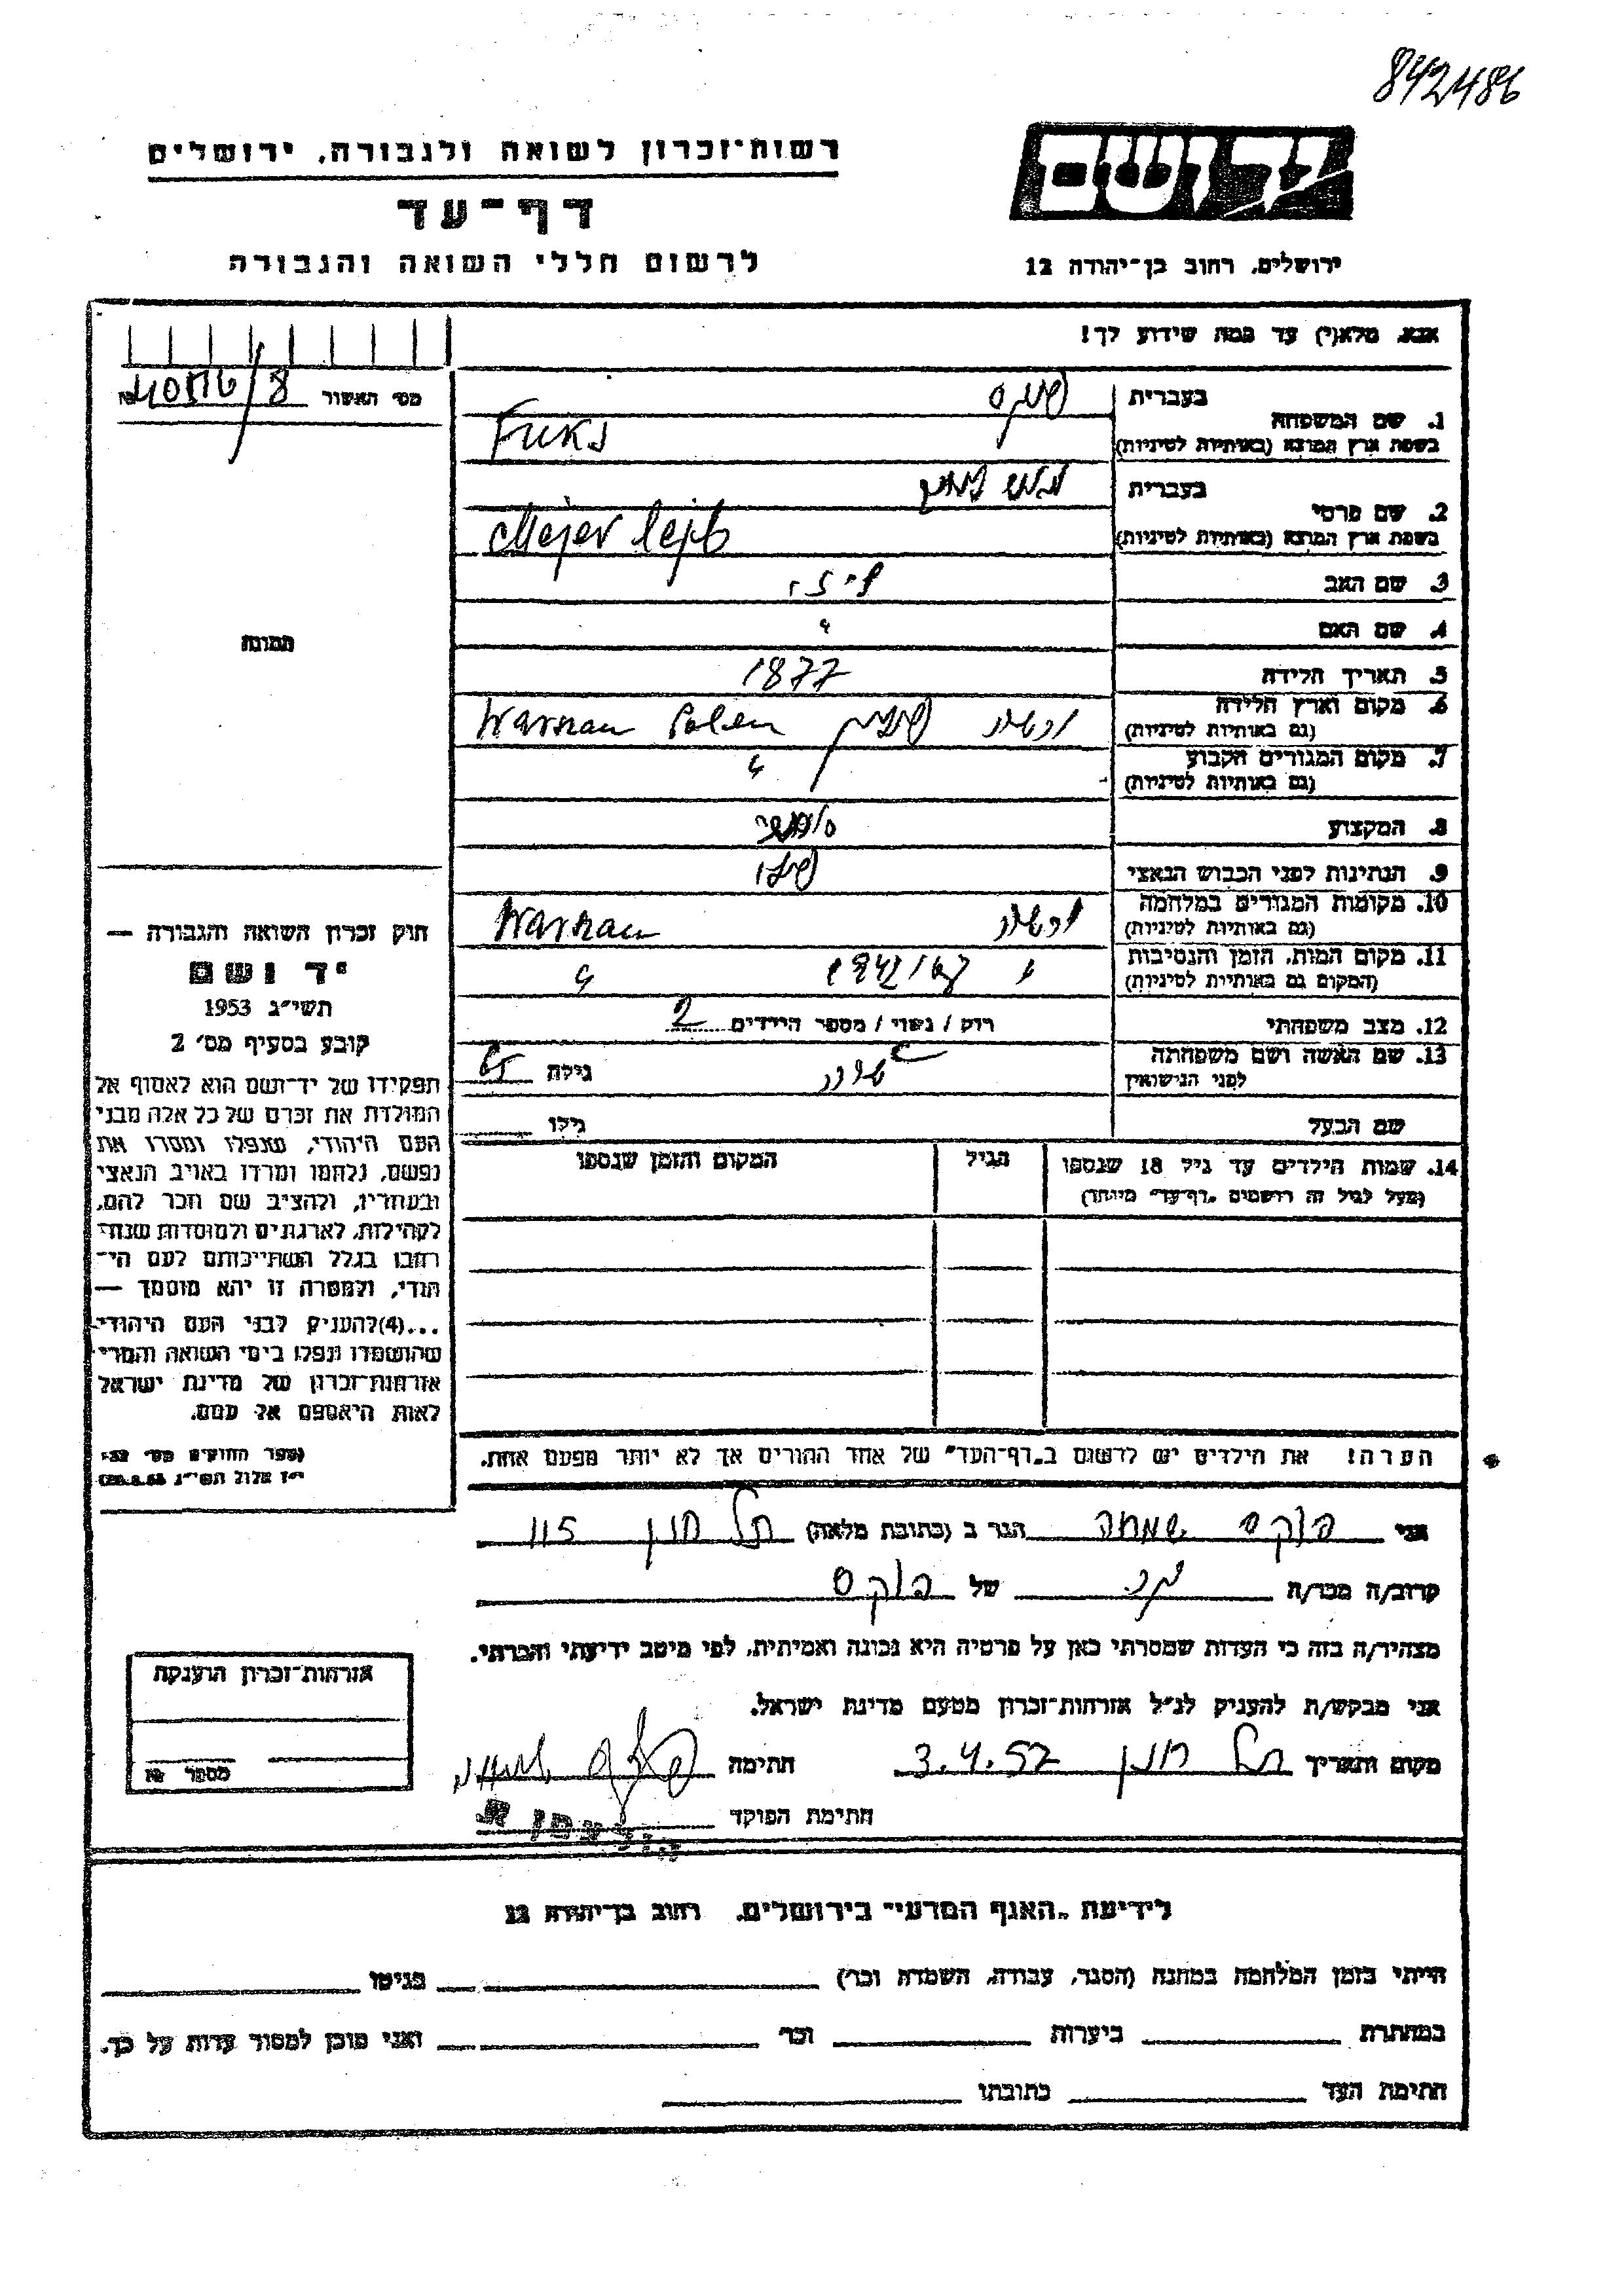 842486
יד ושם
רשות־זכרון לשואה ולגבורה, ירושלים
דף־עד
לרשום חללי השואה והגבורה
ירושלים, רחוב בן־יהודה 12
אנא, מלא(י) עד כמה שידוע לך!
מס' האשור №
1. שם המשפחה
בעברית פוקס
בשפת ארץ המוצא (באותיות לטיניות) Fuks
2. שם פרטי
בעברית
בשפת ארץ המוצא (באותיות לטיניות) Mejer lejb
3. שם האב
4. שם האם
5. תאריך הלידה 1877
6. מקום וארץ הלידה
(גם באותיות לטיניות) ורשה פולין Warszau Polen
7. מקום המגורים הקבוע
(גם באותיות לטיניות)
8. המקצוע
9. הנתינות לפני הכבוש הנאצי
10. מקומות המגורים במלחמה
(גם באותיות לטיניות) ורשה Warszau
11. מקום המות, הזמן והנסיבות
(המקום גם באותיות לטיניות)
12. מצב משפחתי רוק / נשוי / מספר הילדים 2
13. שם האשה ושם משפחתה
לפני הנישואין גילה
שם הבעל גילו
14. שמות הילדים עד גיל 18 שנספו הגיל המקום והזמן שנספו
(מעל לגיל זה רושמים "דף־עד" מיוחד)
הערה! את הילדים יש לרשום ב"דף־העד" של אחד ההורים אך לא יותר מפעם אחת.
תמונה
חוק זכרון השואה והגבורה —
יד ושם
תשי"ג 1953
קובע בסעיף מס' 2
תפקידו של יד־ושם הוא לאסוף אל
המולדת את זכרם של כל אלה מבני
העם היהודי, שנפלו ומסרו את
נפשם, נלחמו ומרדו באויב הנאצי
ובעוזריו, ולהציב שם וזכר להם,
לקהילות, לארגונים ולמוסדות שנח־
רבו בגלל השתייכותם לעם הי־
הודי, ולמטרה זו יהא מוסמך —
...(4) להעניק לבני העם היהודי
שהושמדו ונפלו בימי השואה והמרי
אזרחות־זכרון של מדינת ישראל
לאות היאספם אל עמם.
אני פוקס שמחה הגר ב (כתובת מלאה) תל חנן 115
קרוב/ה מכר/ה של פוקס
מצהיר/ה בזה כי העדות שמסרתי כאן על פרטיה היא נכונה ואמיתית, לפי מיטב ידיעתי והכרתי.
אני מבקש/ת להעניק לנ"ל אזרחות־זכרון מטעם מדינת ישראל.
מקום ותאריך תל חנן 3.4.57 חתימה
חתימת הפוקד
אזרחות־זכרון הוענקה
מספר №
לידיעת "האגף המדעי" בירושלים, רחוב בן־יהודה 12
הייתי בזמן המלחמה במחנה (הסגר, עבודה, השמדה וכו') בגיטו
במחתרת ביערות וכו' ואני מוכן למסור עדות על כך.
חתימת העד כתובתו